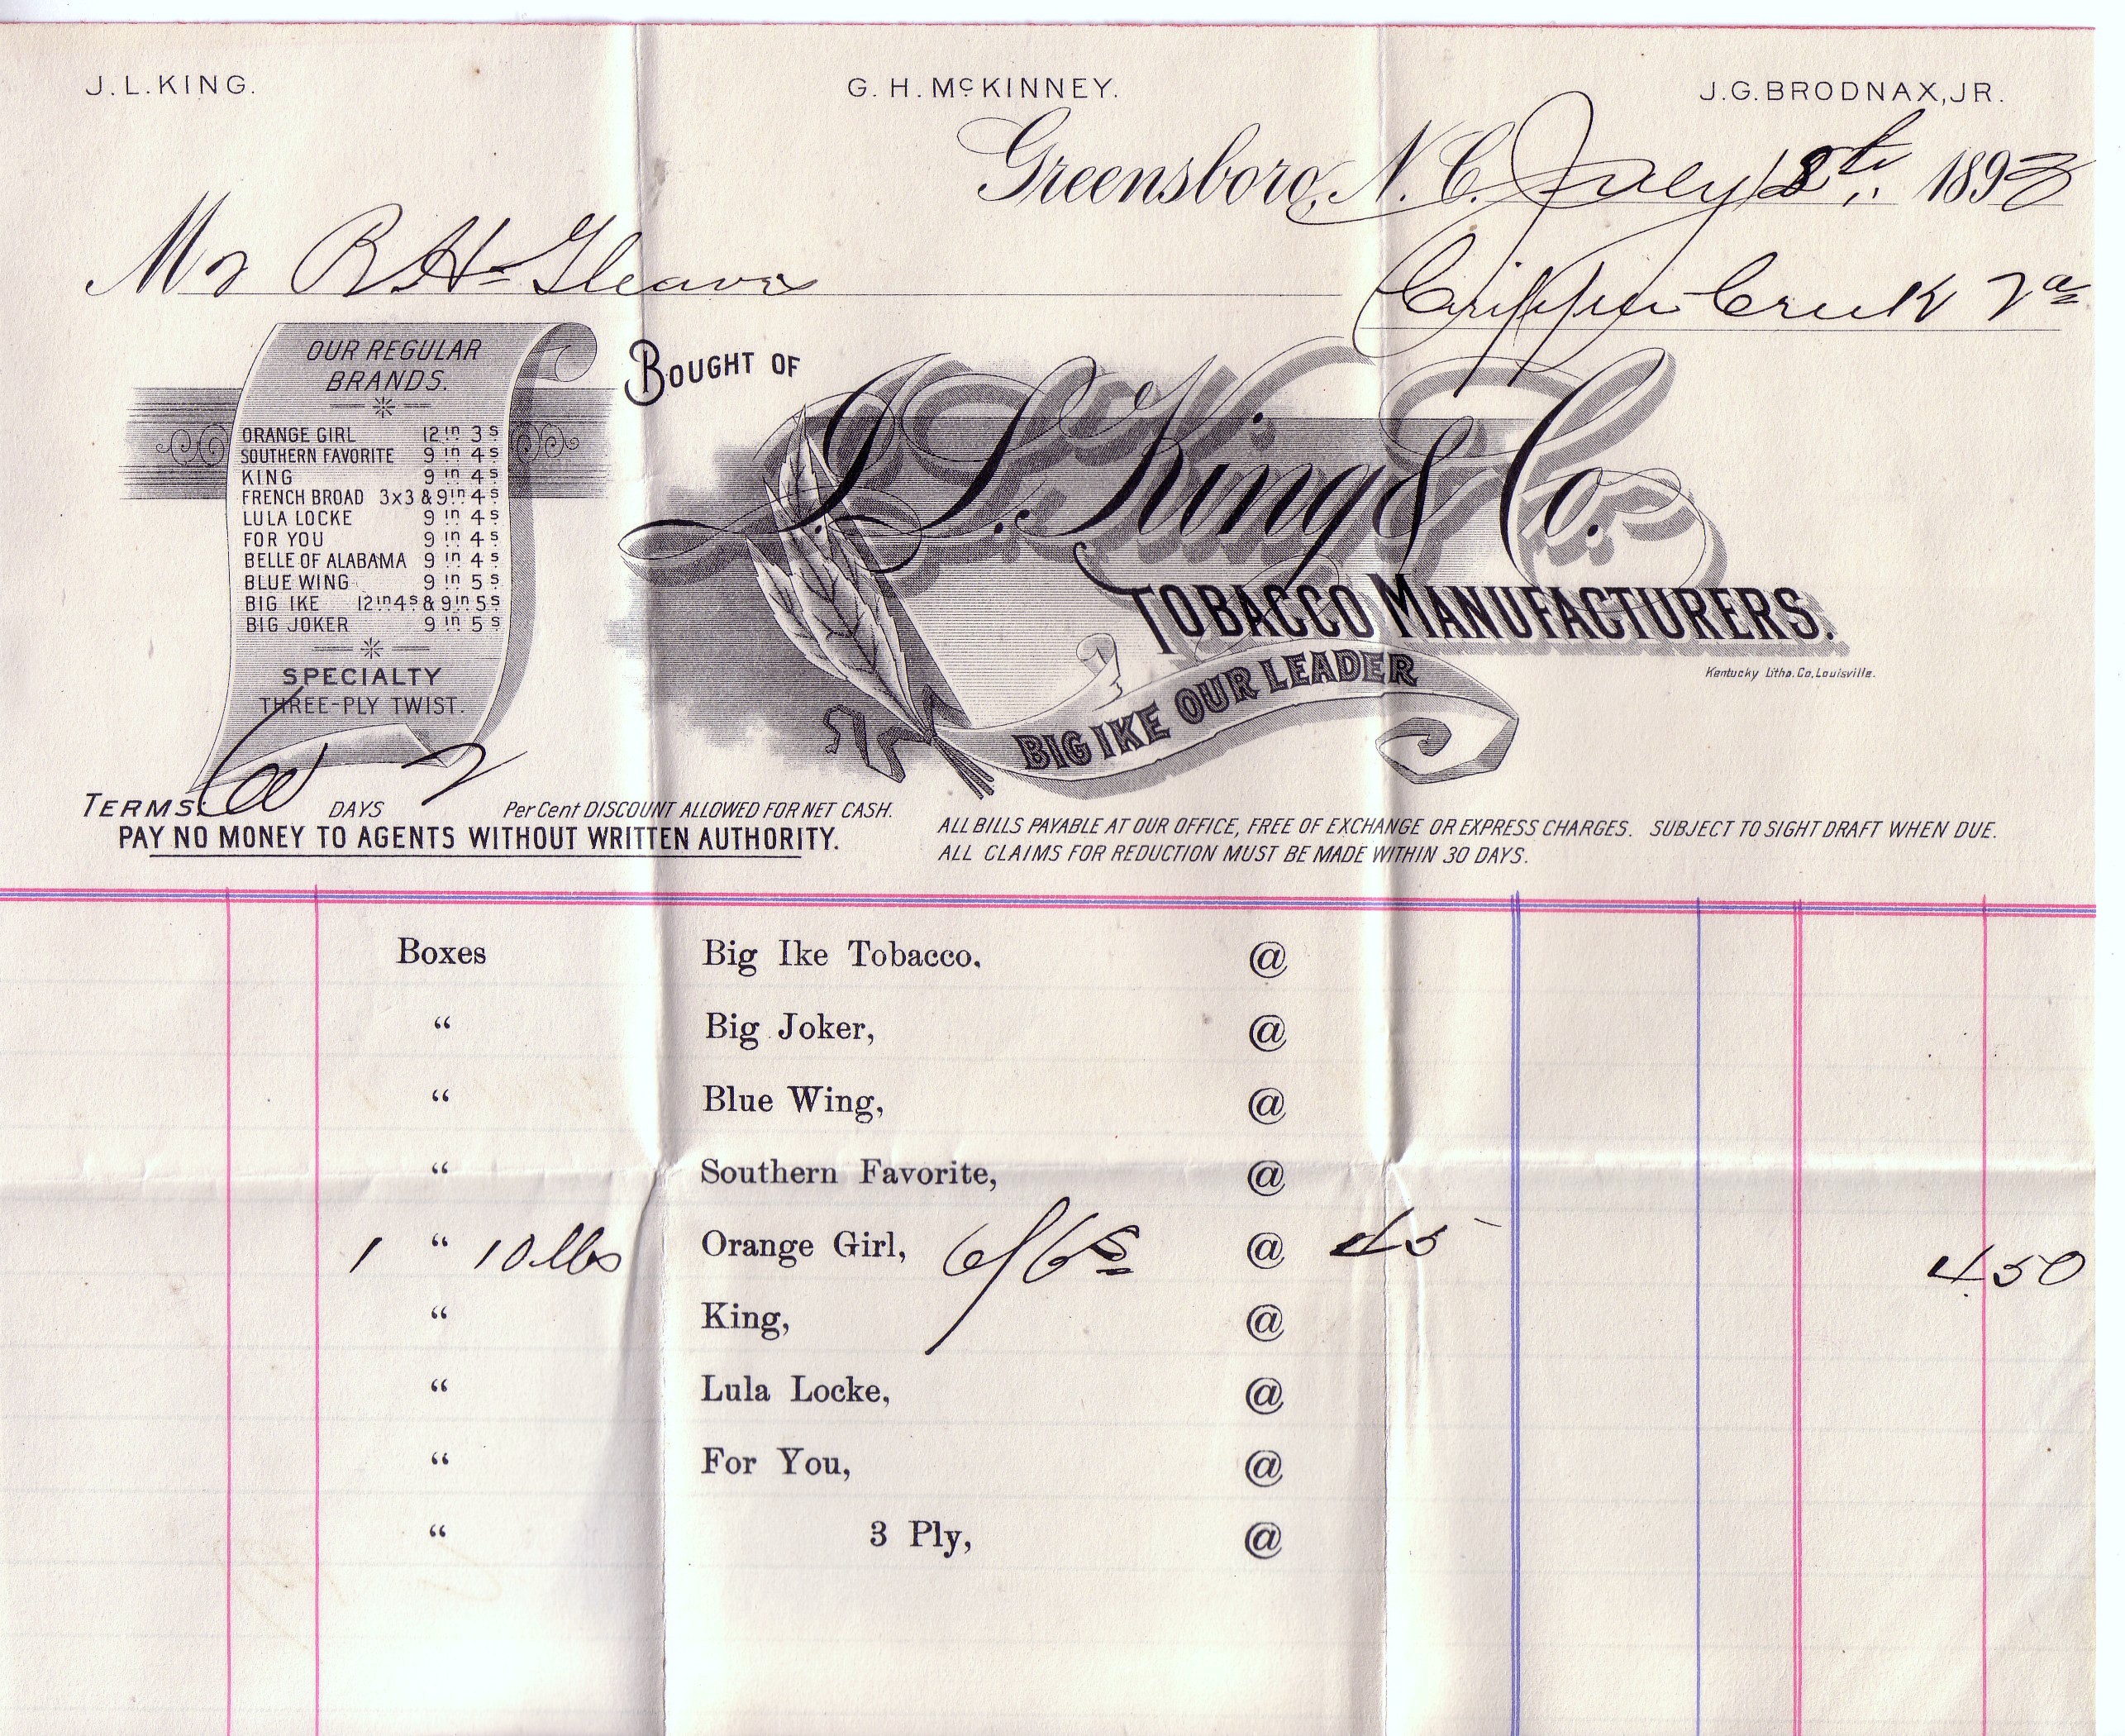 J. L. KING.
G. H. McKINNEY.
J. G. BRODNAX, JR.
Greensboro, N. C. July 18th, 1893
Mr R. H. Gleaves
Crippin Creek Va
OUR REGULAR
BRANDS.
ORANGE GIRL 12 in 3s
SOUTHERN FAVORITE 9 in 4s
KING 9 in 4s
FRENCH BROAD 3x3 & 9 in 4s
LULA LOCKE 9 in 4s
FOR YOU 9 in 4s
BELLE OF ALABAMA 9 in 4s
BLUE WING 9 in 5s
BIG IKE 12 in 4s & 9 in 5s
BIG JOKER 9 in 5s
SPECIALTY
THREE-PLY TWIST.
BOUGHT OF
J. L. King & Co.
TOBACCO MANUFACTURERS.
BIG IKE OUR LEADER
Kentucky Litho. Co, Louisville.
TERMS 60 DAYS 2 Per Cent DISCOUNT ALLOWED FOR NET CASH.
PAY NO MONEY TO AGENTS WITHOUT WRITTEN AUTHORITY.
ALL BILLS PAYABLE AT OUR OFFICE, FREE OF EXCHANGE OR EXPRESS CHARGES. SUBJECT TO SIGHT DRAFT WHEN DUE.
ALL CLAIMS FOR REDUCTION MUST BE MADE WITHIN 30 DAYS.
Boxes Big Ike Tobacco, @
" Big Joker, @
" Blue Wing, @
" Southern Favorite, @
1 " 10 lbs Orange Girl, 6/6s @ 45 4 50
" King, @
" Lula Locke, @
" For You, @
" 3 Ply, @